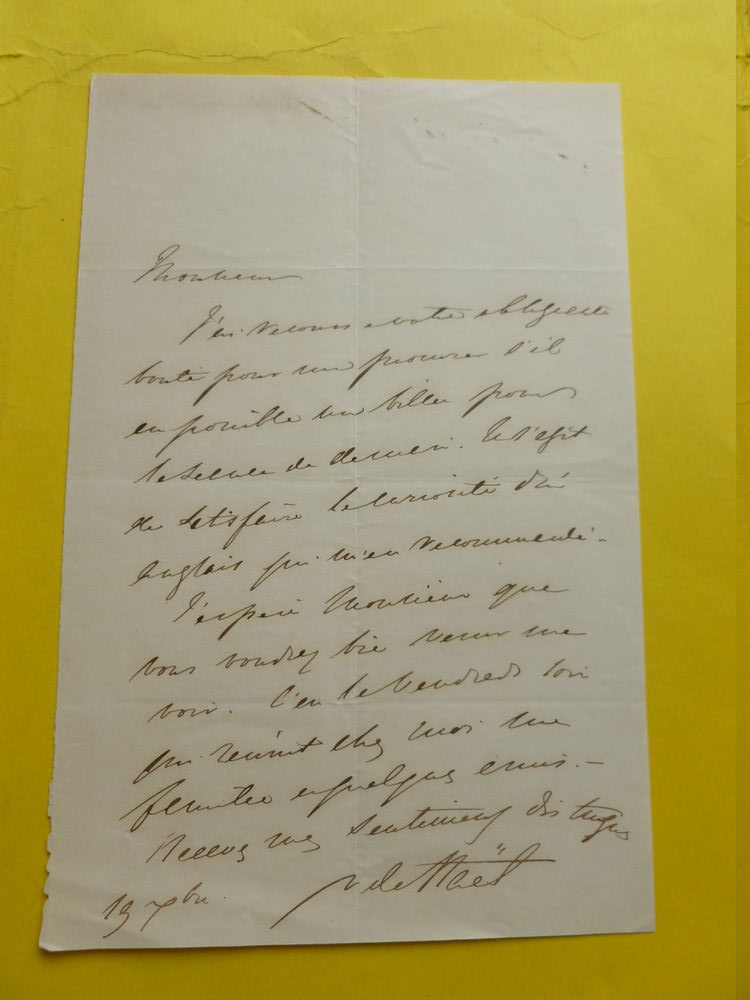 Monsieur
J'ai recours a votre obligeante
bonté pour me procurer s'il
est possible un billet pour
la séance de demain. Il s'agit
de satisfaire la curiosité d'un
anglais qui m'est recommandé -
J'espère Monsieur que
vous voudrez bien venir me
voir. C'est le Vendredi soir
qui réunit chez moi ma
famille et quelques amis. -
Recevez mes sentiments distingués
19 xbre.
de Staël